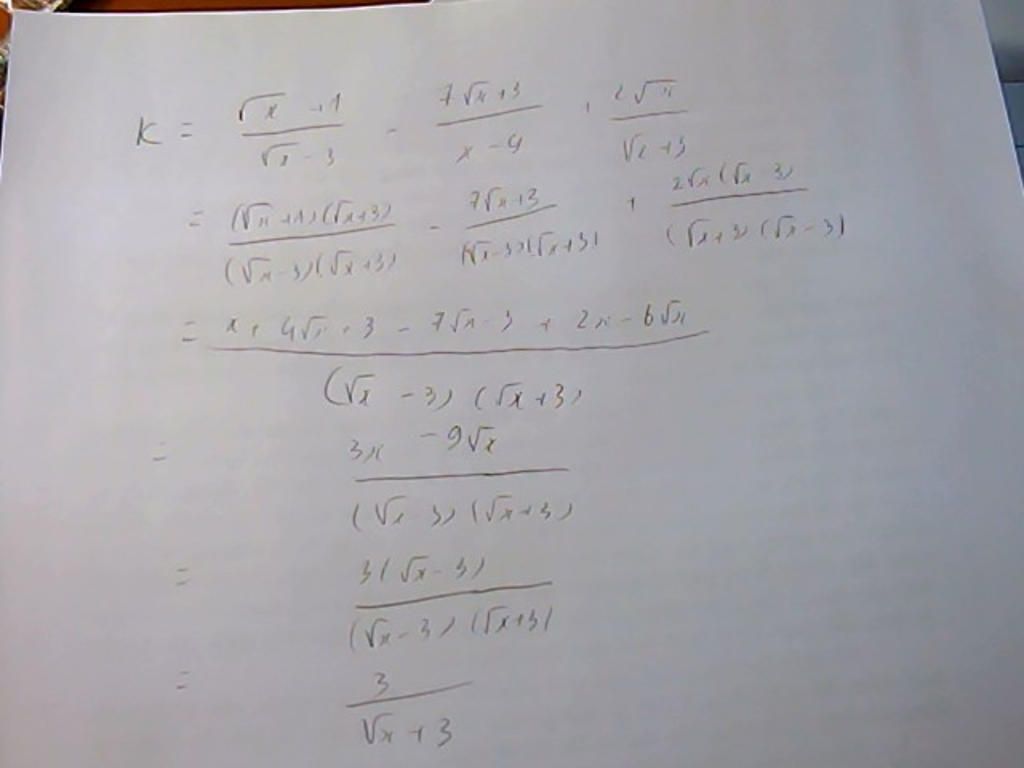 K = (√x + 1)/(√x - 3) - (7√x + 3)/(x - 9) + 2√x/(√x + 3)
= (√x + 1)(√x + 3)/(√x - 3)(√x + 3) - (7√x + 3)/(√x - 3)(√x + 3) + 2√x(√x - 3)/(√x + 3)(√x - 3)
= (x + 4√x + 3 - 7√x - 3 + 2x - 6√x)/(√x - 3)(√x + 3)
= (3x - 9√x)/(√x - 3)(√x + 3)
= 3(√x - 3)/(√x - 3)(√x + 3)
= 3/(√x + 3)